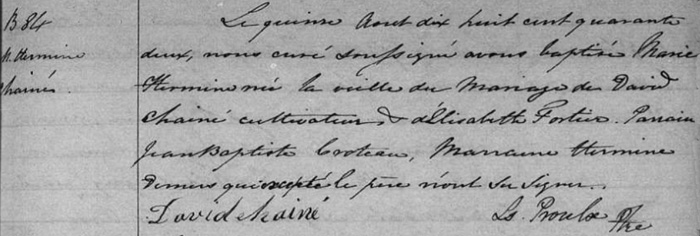 B. 84
M. Hermine
Chainé.
Le quinze Aout dix huit cent quarante
deux, nous curé soussigné avons baptisé Marie
Hermine née la vieille du Mariage de David
Chainé cultivateur & d'Elisabeth Fortier. Parrain
Jean Baptiste Croteau, Marraine Hermine
Demers qui excepté le père n'ont su signer.
David Chainé
Ls. Proulx Ptre